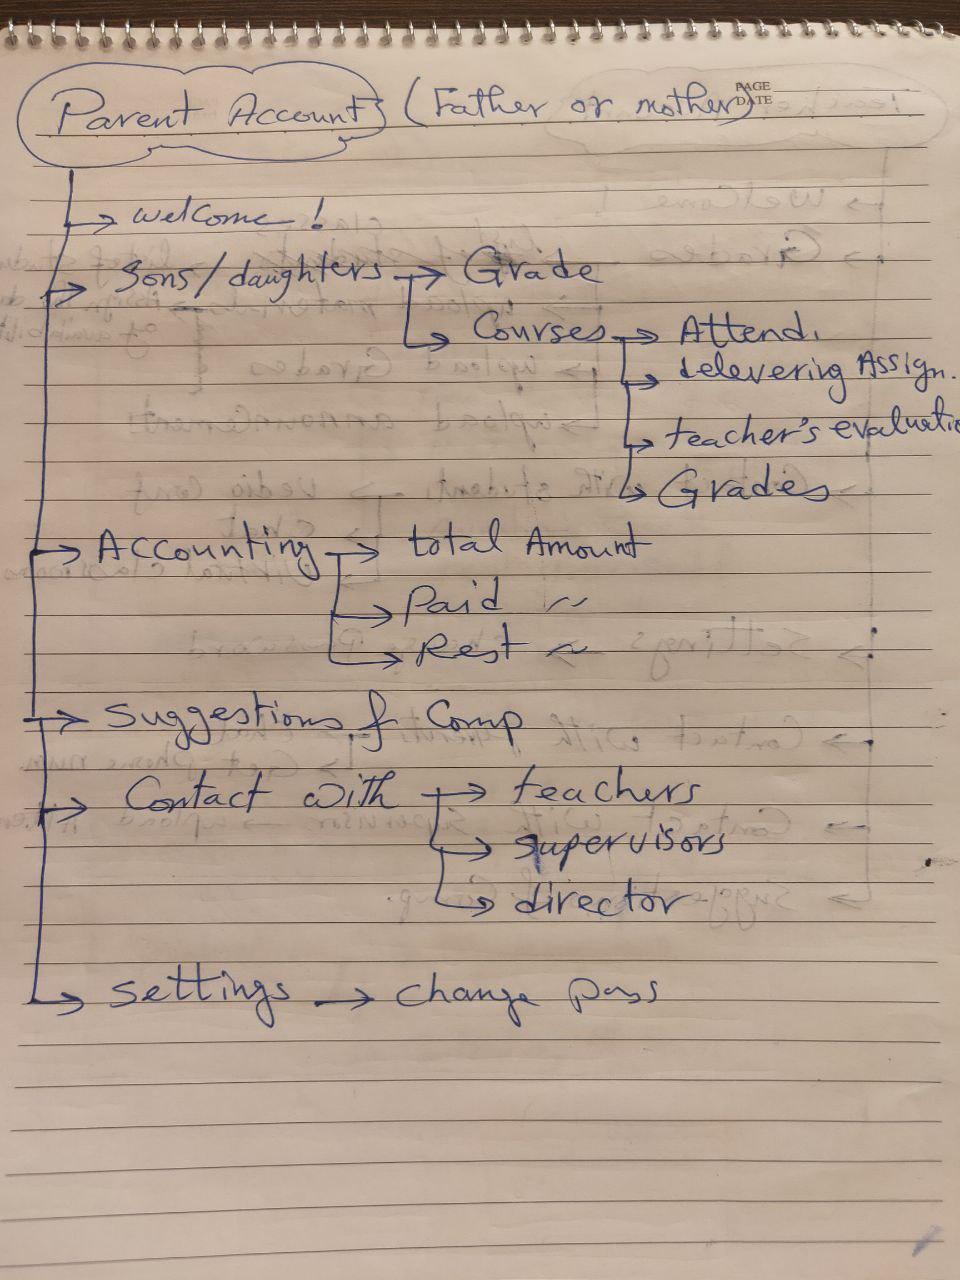 Parent Account (Father or mother)
PAGE
DATE
→ welcome!
→ Sons/daughters → Grade
→ Courses → Attend.
→ Delevering Assign.
→ teacher's evaluatio
→ Grades
→ Accounting → total Amount
→ Paid ~
→ Rest ~
→ Suggestions & Comp
→ Contact with → teachers
→ supervisors
→ director
→ settings → change pass